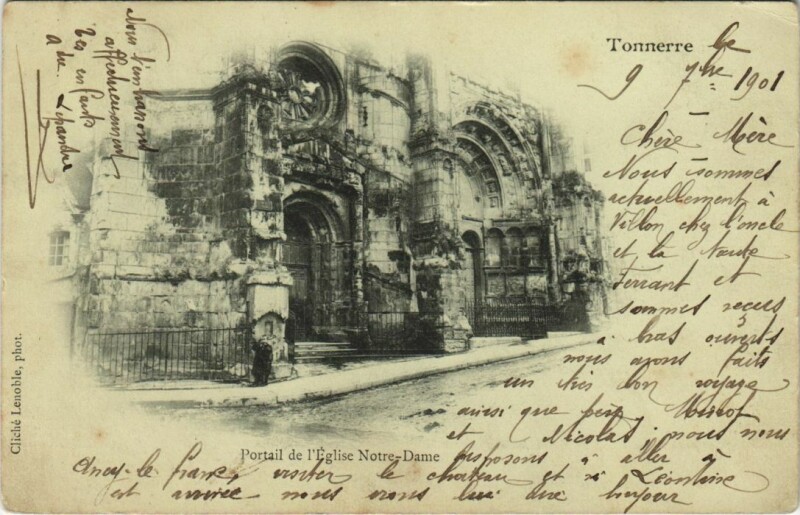 Tonnerre le
9 7bre 1901
Chère Mère
Nous sommes
actuellement à
Villon chez l'oncle
et la tante
Ferrant et
sommes reçus
à bras ouverts
nous avons faits
un très bon voyage
ainsi que
et Nicolas nous nous
disposons à aller à
Ancy-le-franc, visiter le chateau et si Léontine
est arrivée nous irons lui dire bonjour
Nous t'embrassons
affectueusement
Tes enfants
Portail de l'Église Notre-Dame
Cliché Lenoble, phot.